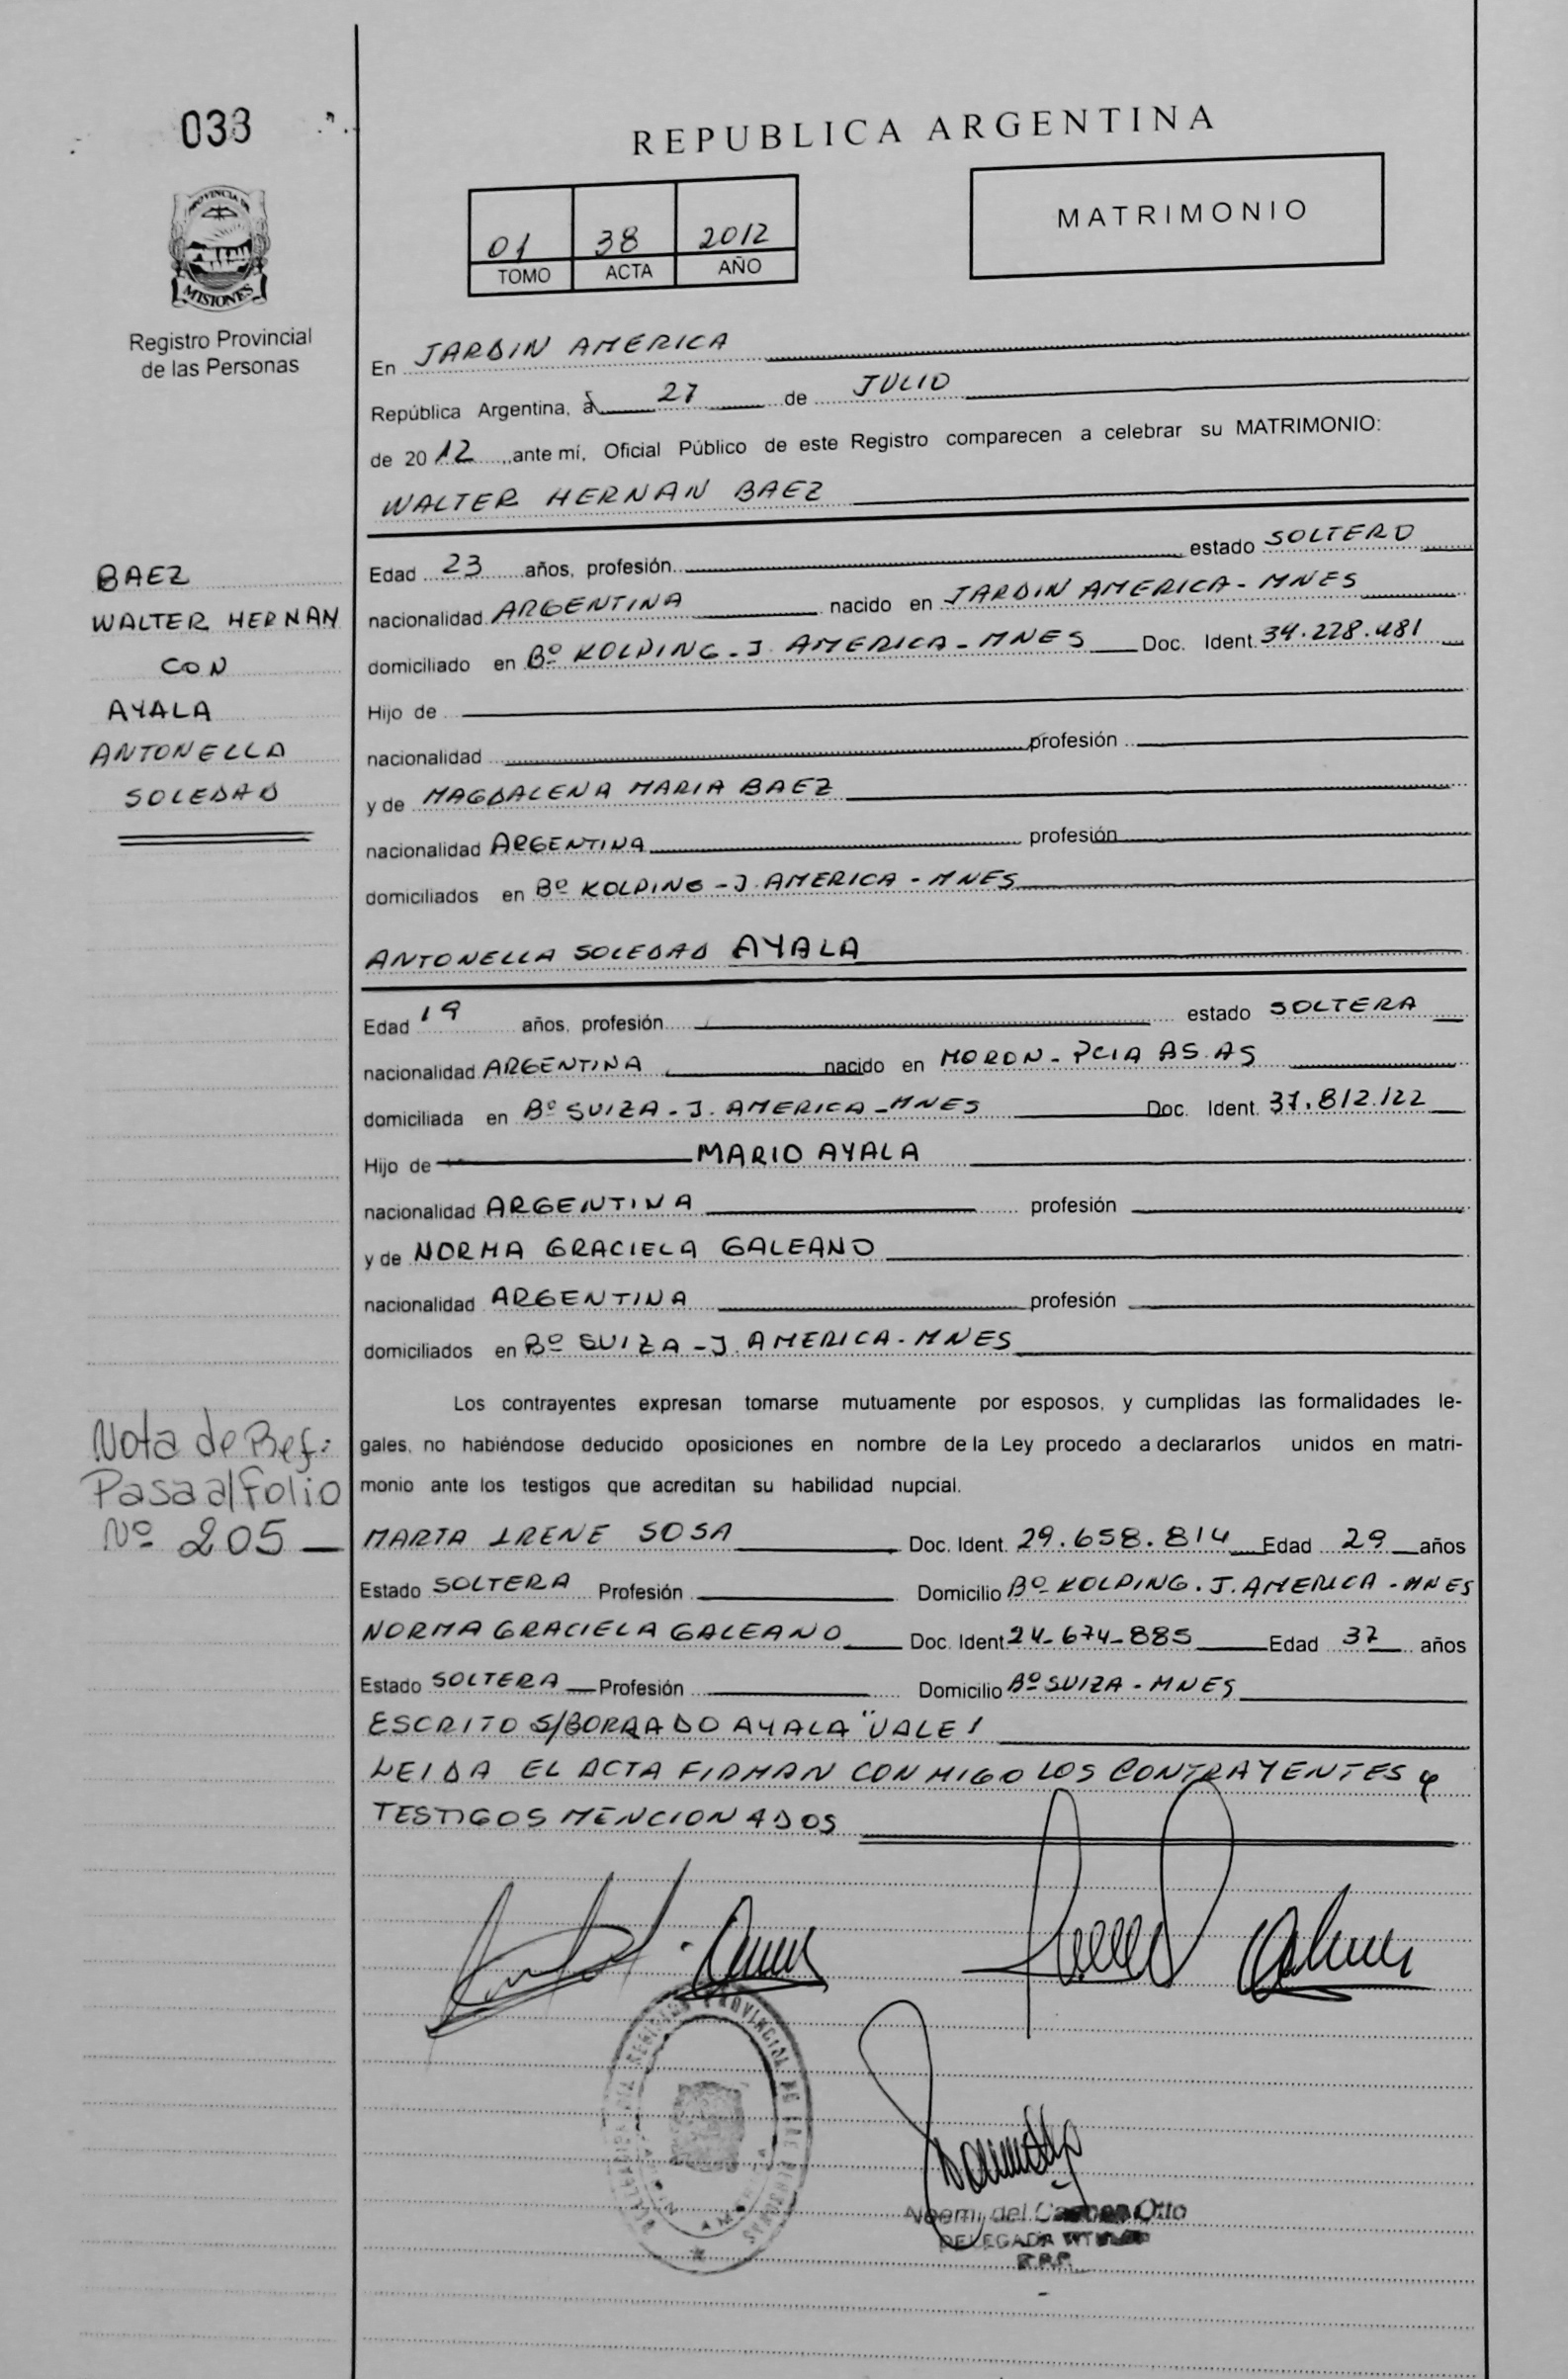 033
REPUBLICA ARGENTINA
PROVINCIA DE
MISIONES
Registro Provincial
de las Personas
01 38 2012
TOMO ACTA AÑO
MATRIMONIO
En JARDIN AMERICA
República Argentina, a 27 de JULIO
de 2012, ante mí, Oficial Público de este Registro comparecen a celebrar su MATRIMONIO:
WALTER HERNAN BAEZ
BAEZ
WALTER HERNAN
CON
AYALA
ANTONELLA
SOLEDAD
Edad 23 años, profesión estado SOLTERO
nacionalidad ARGENTINA nacido en JARDIN AMERICA - MNES
domiciliado en Bº KOLPING - J. AMERICA - MNES Doc. Ident. 34.228.481
Hijo de
nacionalidad profesión
y de MAGDALENA MARIA BAEZ
nacionalidad ARGENTINA profesión
domiciliados en Bº KOLPING - J. AMERICA - MNES
ANTONELLA SOLEDAD AYALA
Edad 19 años, profesión estado SOLTERA
nacionalidad ARGENTINA nacido en MORON - PCIA BS. AS
domiciliada en Bº SUIZA - J. AMERICA - MNES Doc. Ident. 37.812.122
Hijo de MARIO AYALA
nacionalidad ARGENTINA profesión
y de NORMA GRACIELA GALEANO
nacionalidad ARGENTINA profesión
domiciliados en Bº SUIZA - J. AMERICA - MNES
Los contrayentes expresan tomarse mutuamente por esposos, y cumplidas las formalidades le-
gales, no habiéndose deducido oposiciones en nombre de la Ley procedo a declararlos unidos en matri-
monio ante los testigos que acreditan su habilidad nupcial.
Nota de Ref.:
Pasa a/ Folio
Nº 205
MARTA IRENE SOSA Doc. Ident. 29.658.814 Edad 29 años
Estado SOLTERA Profesión Domicilio Bº KOLPING. J. AMERICA - MNES
NORMA GRACIELA GALEANO Doc. Ident. 24-674-885 Edad 37 años
Estado SOLTERA Profesión Domicilio Bº SUIZA - MNES
ESCRITO S/BORRADO AYALA "VALE"
LEIDA EL ACTA FIRMAN CONMIGO LOS CONTRAYENTES Y
TESTIGOS MENCIONADOS
REGISTRO PROVINCIAL DE LAS PERSONAS
Noemi del Carmen Otto
DELEGADA TITULAR
R.P.P.